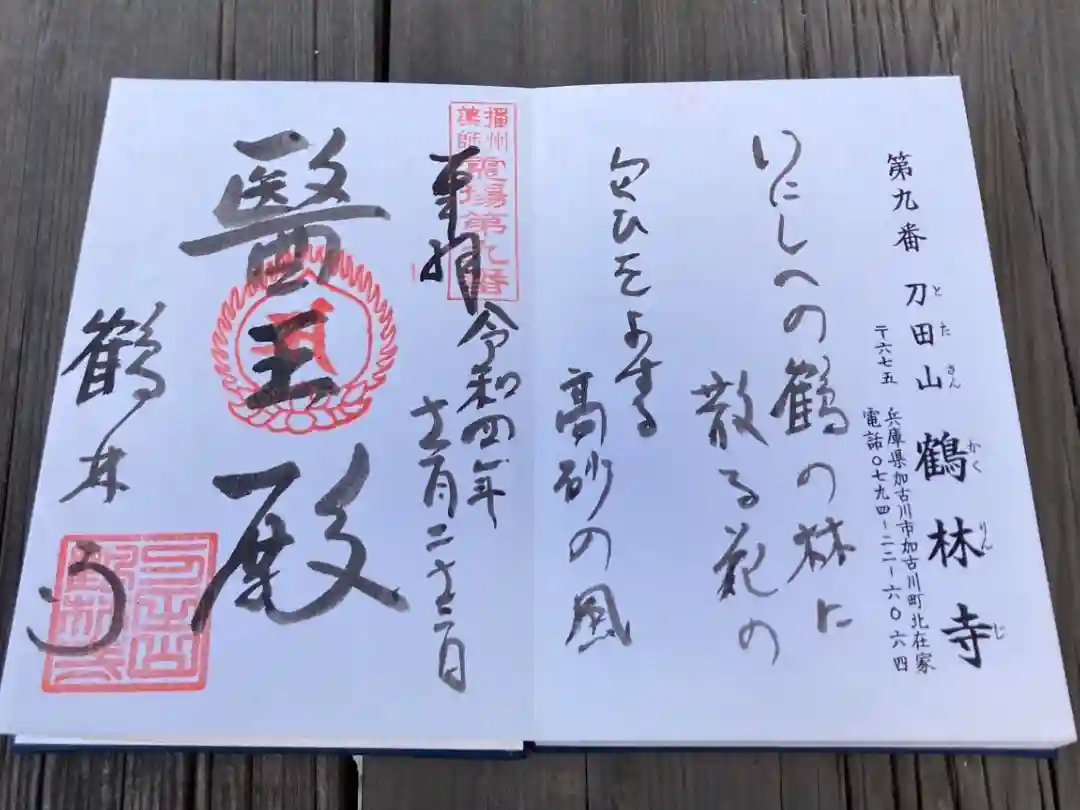 第九番 刀田山 鶴林寺
とたさん かくりんじ
〒六七五 兵庫県加古川市加古川町北在家
電話〇七九四-二二-六〇六四
いにしへの鶴の林に
散る花の
匂ひをよする
高砂の風
播州
薬師
霊場第九番
奉拝 令和四年
醫王殿
鶴林寺
刀田山
鶴林寺